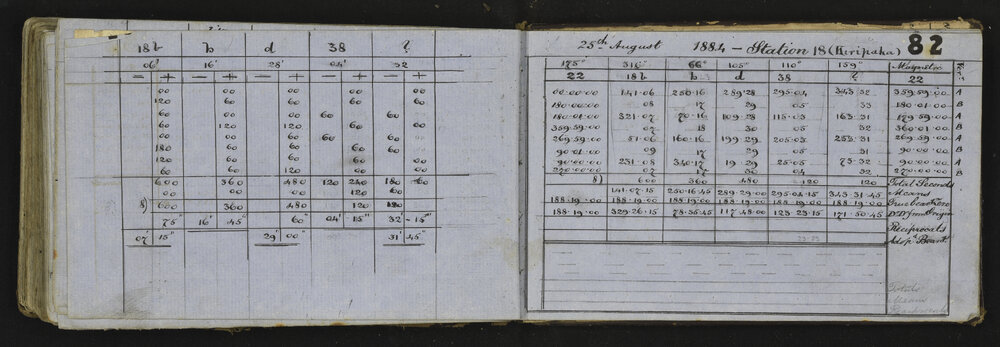 18b b d 38 l
06' 16' 28' 04' 32
— + — + — + — + — +
00 00 00 00 00
120 60 60 60 60
60 00 00 60 60
60 120 120 60 00
00 60 60 00 60
180 60 60 60 60
120 60 60 00
60 60 120 00 00
600 360 480 120 240 180 60
00 00 00
8) 600 360 480 120 120
75" 16' 45" 60" 04' 15" 32' — 15"
07' 15" 29' 00" 31' 45"
25th August 1884 — Station 18 (Kiripaka) 82
175° 316° 66° 105° 110° 159°
22 18b b d 38 l 22
00·00·00 141·06 250·16 289·28 295·04 343·32 359·59·00 A
180·00·00 08 17 29 05 33 180·01·00 B
180·01·00 321·07 70·16 109·28 115·03 163·31 179·59·00 A
359·59·00 07 18 30 05 32 360·01·00 B
269·59·00 51·06 160·16 199·29 205·03 253·31 269·59·00 A
90·01·00 09 17 29 05 31 90·00·00 B
90·00·00 231·08 340·17 19·29 25·05 73·32 90·00·00 A
270·00·00 07 17 30 04 32 270·00·00 B
8) 600 360 480 120 120 Total Seconds
141·07·15 250·16·45 289·29·00 295·04·15 343·31·45 Means
188·19·00 188·19·00 188·19·00 188·19·00 188·19·00 188·19·00
188·19·00 329·26·15 78·35·45 117·48·00 123·23·15 171·50·45
Reciprocals
23·23
Totals
Means